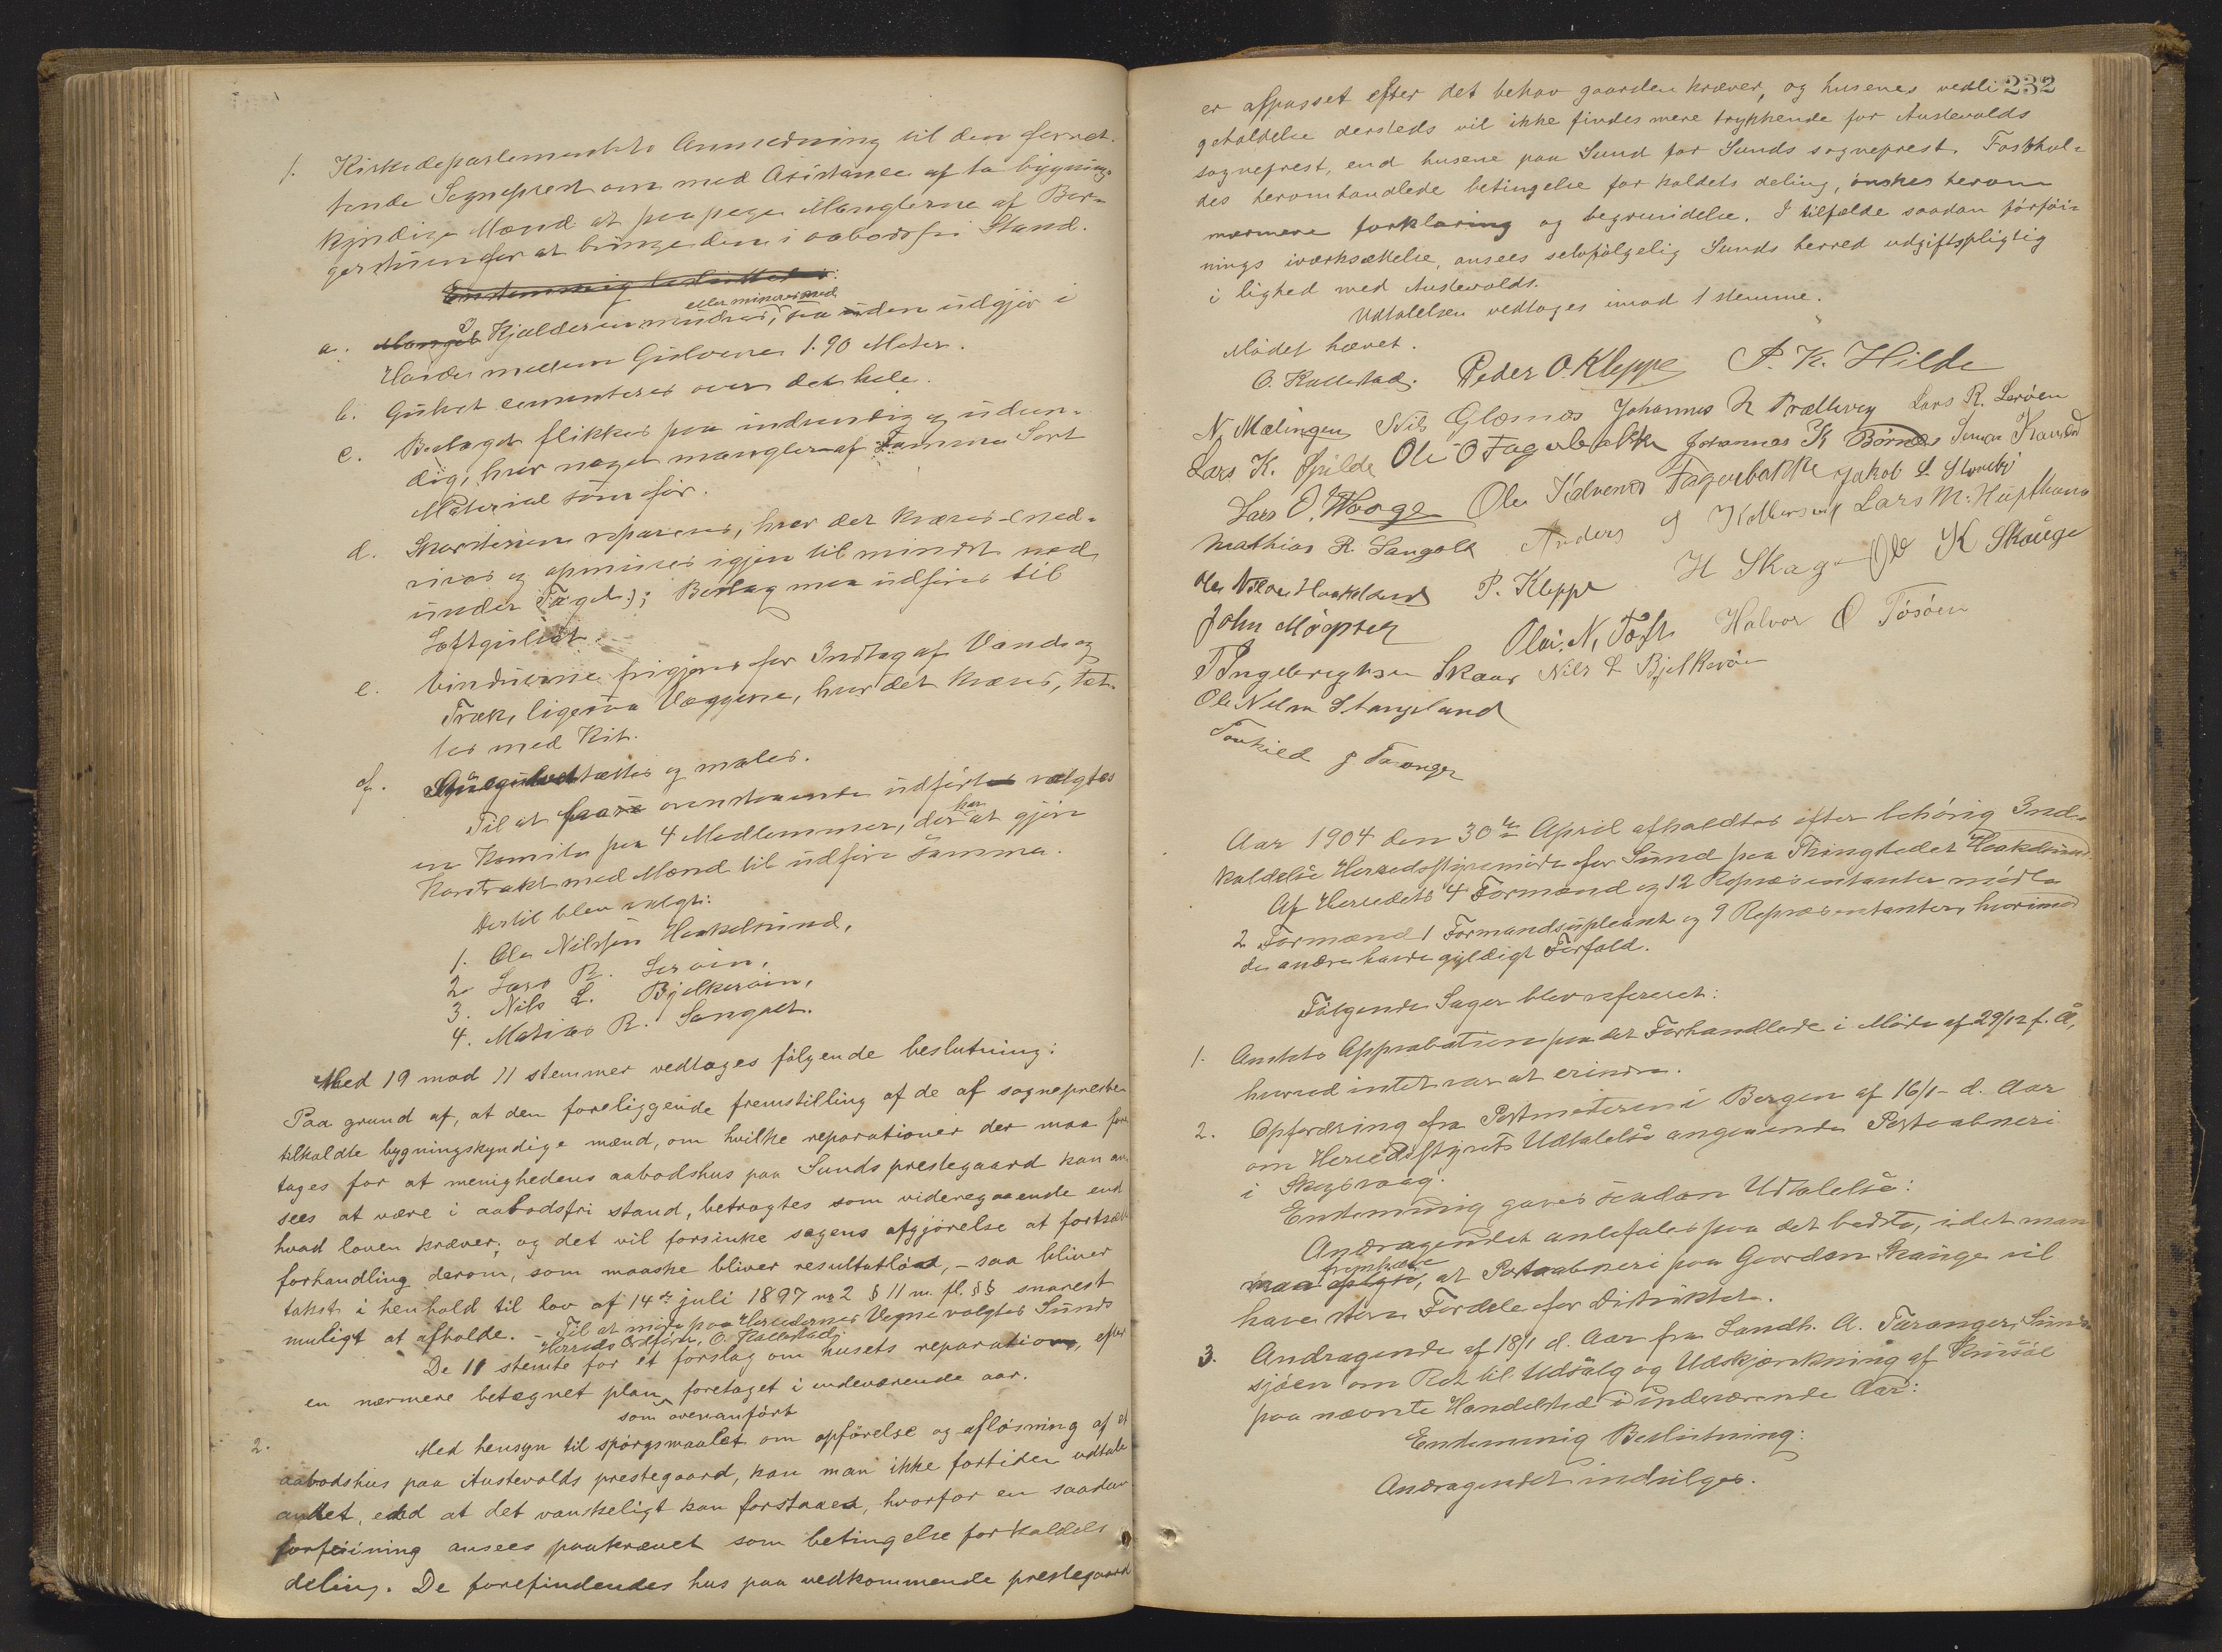 1. Kirkedepartementets Anmodning til den fornet.
tende Sogneprest om med Asistance af to bygnings-
kyndige Mænd at paapege Manglerne af Bor-
gerstuen for at bringe dem i aabodsfri Stand.
Enstemmig besluttet:
eller mineres ned
a. Mangel Kjælderen mudres, saa den udgjør i
Høide mellem Gulvene 1.90 Meter.
b. Gulvet cementeres over det hele.
c. Beslaget flikkes paa indvendig og udven-
dig, hvor noget mangler af samme Sort
Material som før.
d. Skorstenen repareres, hvor det kræves (ned-
rives og opmures igjen til mindst ned
under Taget); Beslag maa udføres til
Loftgulvet.
e. Vinduerne frigjøres for Indtag af Vand og
Træk, ligesaa Væggene, hvor det kræves, tæt-
tes med Kit.
f. tættes og males.
Til at faa ovenstaaende udført valgtes
en Komite paa 4 Medlemmer, der har at gjøre
Kontrakt med Mænd til udføre samme.
Dertil blev valgt:
1. Ole Nilssen Haakelsund,
2 Lars R. Lerøen,
3. Nils L. Bjelkerøen,
4. Matias R. Sangolt.
Med 19 mod 11 stemmer vedtoges følgende beslutning:
Paa grund af, at den foreliggende fremstilling af de af sognepresten
tilkaldte bygningskyndige mænd, om hvilke reparationer der maa fore
tages for at menighedens aabodshus paa Sunds prestegaard kan an
sees at være i aabodsfri stand, betragtes som videregaaende end
hvad loven kræver; og det vil forsinke sagens afgjørelse at fortsætte
forhandling derom, som maaske bliver resultatløs, – saa bliver
takst i henhold til lov af 14de juli 1897 no 2 § 11 m. fl. §§ snarest
muligt at afholde. – Til at møde paa Herredernes Vegne valgtes Sunds
Herreds Ordfører, O. Kallestad.
De 11 stemte for et forslag om husets reparation, efter
en nærmere betegnet plan, foretaget i indeværende aar.
som ovenanført
2. Med hensyn til spørgsmaalet om opførelse og afløsning af et
aabodshus paa Austevolds prestegaard, kan man ikke fortiden udtale
andet, end at det vanskeligt kan forstaaes, hvorfor en saadan
forføining ansees paakrævet som betingelse for kaldets
deling. De forefindendes hus paa vedkommende prestegaard
232
er afpasset efter det behov gaarden kræver, og husenes vedli
geholdelse dersteds vil ikke findes mere trykkende for Austevolds
sogneprest, end husene paa Sund for Sunds sogneprest. Fasthol-
des heromhandlede betingelse for kaldets deling, ønskes herom
nærmere forklaring og begrundelse. I tilfælde saadan førføi-
nings iværksættelse, ansees selvfølgelig Sunds herred udgiftspligtig
i lighed med Austevolds.
Udtalelsen vedtoges imod 1 stemme.
Mødet hævet.
O. Kallestad. Peder O. Kleppe P. K. Hilde
N Mælingen Nils Glesnes Johannes N Trællevig Lars R. Lerøen
Lars K. Spilde Ole O Fagerbakke Johannes K Børnes
Lars O. Waage Ole Fagerbakke Jakob S.
Mathias R. Sangolt Anders Lars M. Hufthamar
Ole Nilsen Haakelsund P. Kleppe H Skage Ole K Skauge
John Møgster Olai. N. Toft Halvor O Tøsøen
T Ingebrigtsen Skaar Nils L Bjelkerøen
Ole Nilsen Stangeland
Torkild J Taranger
Aar 1904 den 30te April afholdtes efter lovhørig Ind-
kaldelse Herredsstyremøde for Sund paa Thingstedet Haakelsund.
Af Herredets 4 Formænd og 12 Repræsentanter mødte
2 Formænd 1 Formandsupleant og 9 Repræsentanter, hvorimod
de andre havde gyldigt Forfald.
Følgende Sager blev refereret:
1. Amtets Approbation paa det Forhandlede i Møde af 29/12 f. A,
hvorved intet var at erindre.
2. Opfordring fra Postmesteren i Bergen af 16/1 – d. Aar
om Herredsstyrets Udtalelse angaaende Postaabneri
i Skogsvaag.
Enstemmig gaves saadan Udtalelse:
Andragendet anbefales paa det bedste, idet man
fremhæve
maa , at Postaabneri paa Gaarden Skauge vil
have store Fordele for Distriktet.
3. Andragende af 18/1 d. Aar fra Landh. A. Taranger, Sund-
sjøen om Ret til Udsalg og Udskjænkning af
paa nævnte Handelsted i indeværende Aar:
Enstemmig Beslutning:
Andragendet indvilges.